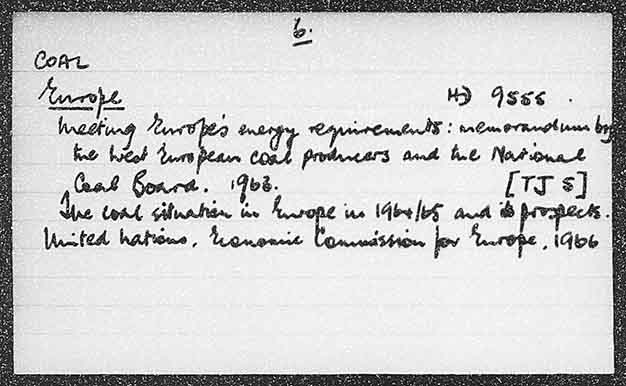 6.
COAL
Europe HD 9555.
Meeting Europe's energy requirements: memorandum by
the West European coal producers and the National
Coal Board. 1963. [TJ S]
The coal situation in Europe in 1964/65 and its prospects.
United Nations. Economic Commission for Europe. 1966